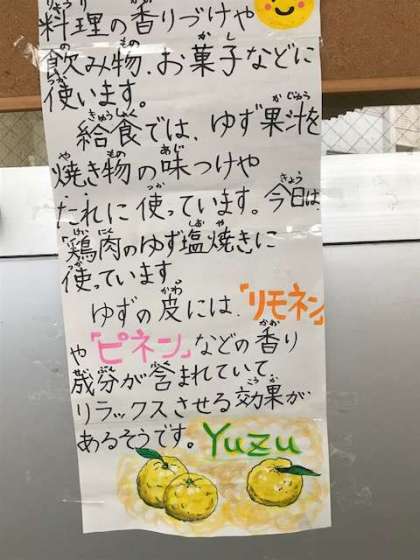 料理の香りづけや
飲み物、お菓子などに
使います。
給食では、ゆず果汁を
焼き物の味つけや
たれに使っています。今日は、
「鶏肉のゆず塩焼き」に
使っています。
ゆずの皮には、「リモネン」
や「ピネン」などの香り
成分が含まれていて、
リラックスさせる効果が
あるそうです。 Yuzu